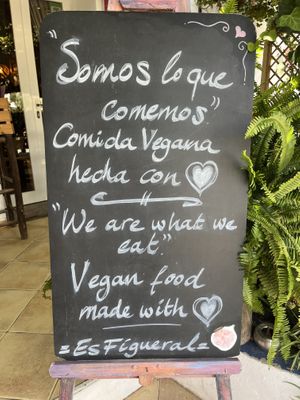 "Somos lo que
comemos"
Comida Vegana
hecha con
"We are what we
eat."
Vegan food
made with
= Es Figueral =